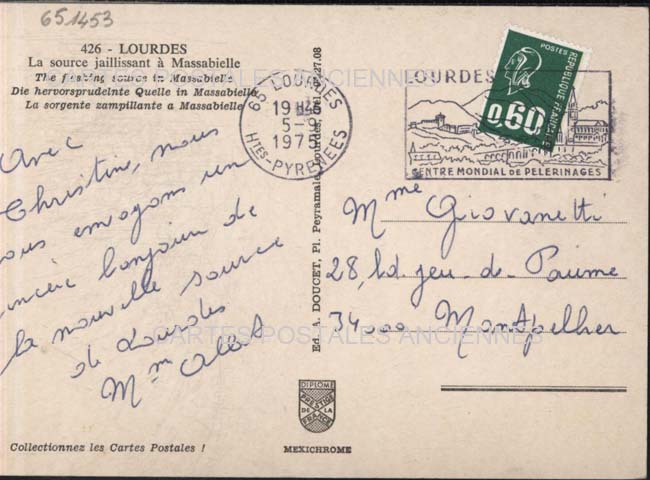 651453
426 - LOURDES
La source jaillissant à Massabielle
The flushing source in Massabielle
Die hervorsprudelnte Quelle in Massabielle
La sorgente zampillante a Massabielle
65 LOURDES
19 H45
5-9
1975
Htes-PYRENEES
LOURDES
CENTRE MONDIAL DE PELERINAGES
POSTES
REPUBLIQUE FRANCAISE
0,60
Avec
Christine, nous
vous envoyons un
sincère bonjour de
la nouvelle source
de Lourdes
Mme
Mme Giovanetti
28, bd jeu-de-Paume
34000 Montpellier
Ed. A. DOUCET, Pl. Peyramale, Lourdes, Tél. 27.08
CARTES POSTALES ANCIENNES
CARTES POSTALES ANCIENNES
DIPLOME
PRESTIGE
DE LA
FRANCE
MEXICHROME
Collectionnez les Cartes Postales !